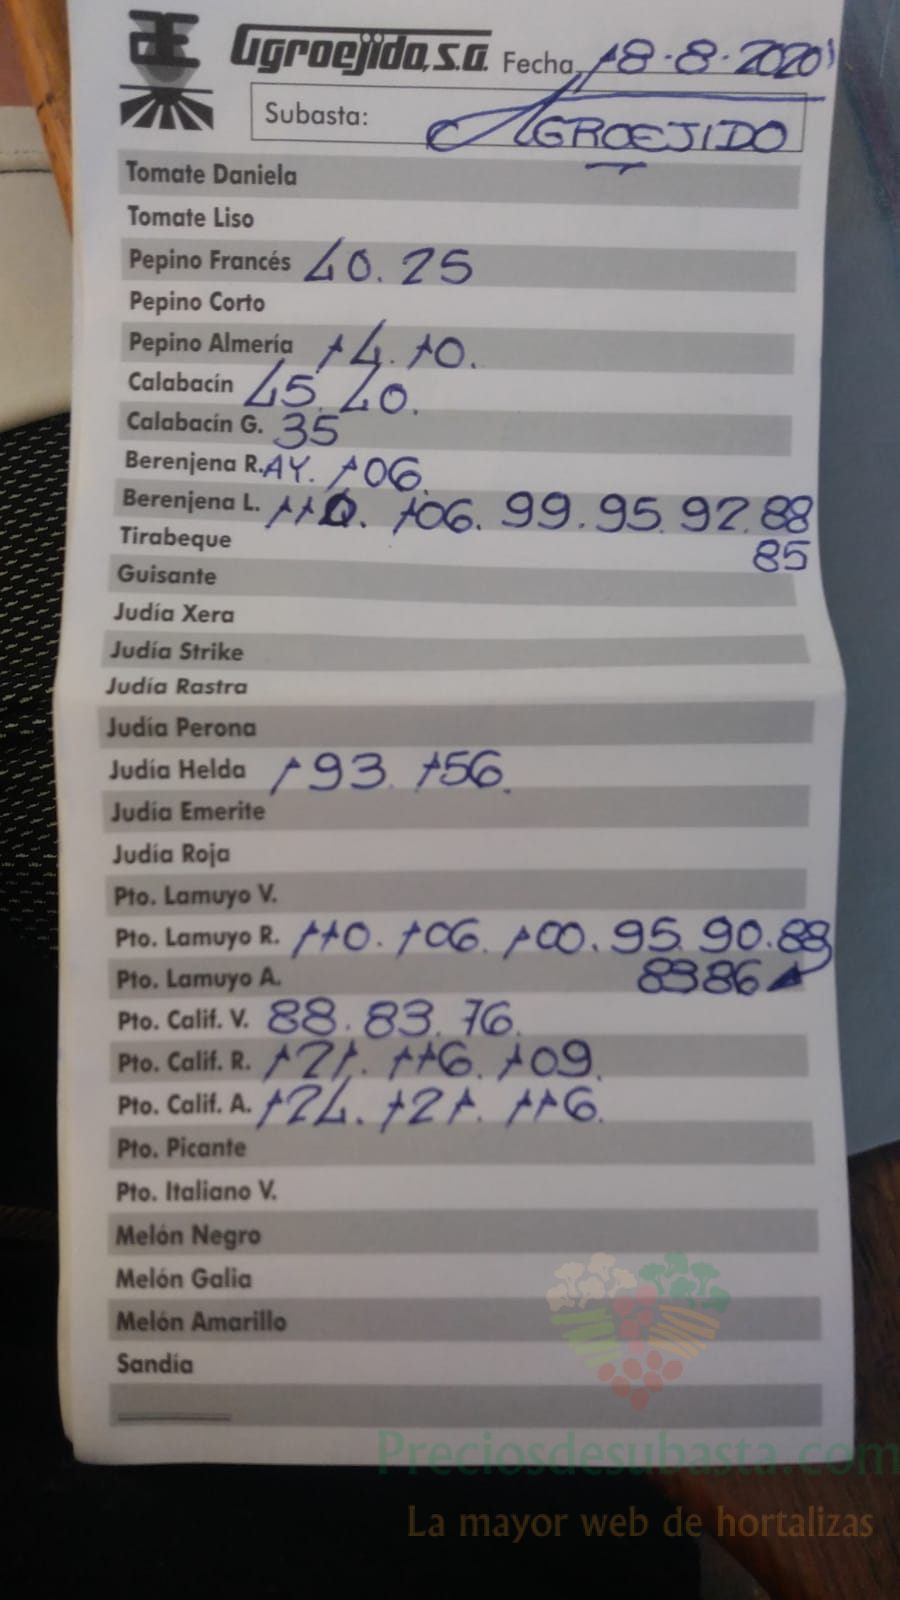 Agroejido, S.A. Fecha 18-8-2020
Subasta: AGROEJIDO
Tomate Daniela
Tomate Liso
Pepino Francés 40. 25
Pepino Corto
Pepino Almería 14. 10.
Calabacín 45. 40.
Calabacín G. 35
Berenjena R. AY. 106.
Berenjena L. 110. 106. 99. 95. 92. 88
Tirabeque 85
Guisante
Judía Xera
Judía Strike
Judía Rastra
Judía Perona
Judía Helda 193. 156.
Judía Emerite
Judía Roja
Pto. Lamuyo V.
Pto. Lamuyo R. 110. 106. 100. 95. 90. 88
Pto. Lamuyo A. 86
Pto. Calif. V. 88. 83. 76.
Pto. Calif. R. 121. 116. 109.
Pto. Calif. A. 124. 121. 116.
Pto. Picante
Pto. Italiano V.
Melón Negro
Melón Galia
Melón Amarillo
Sandía
Preciosdesubasta.com
La mayor web de hortalizas